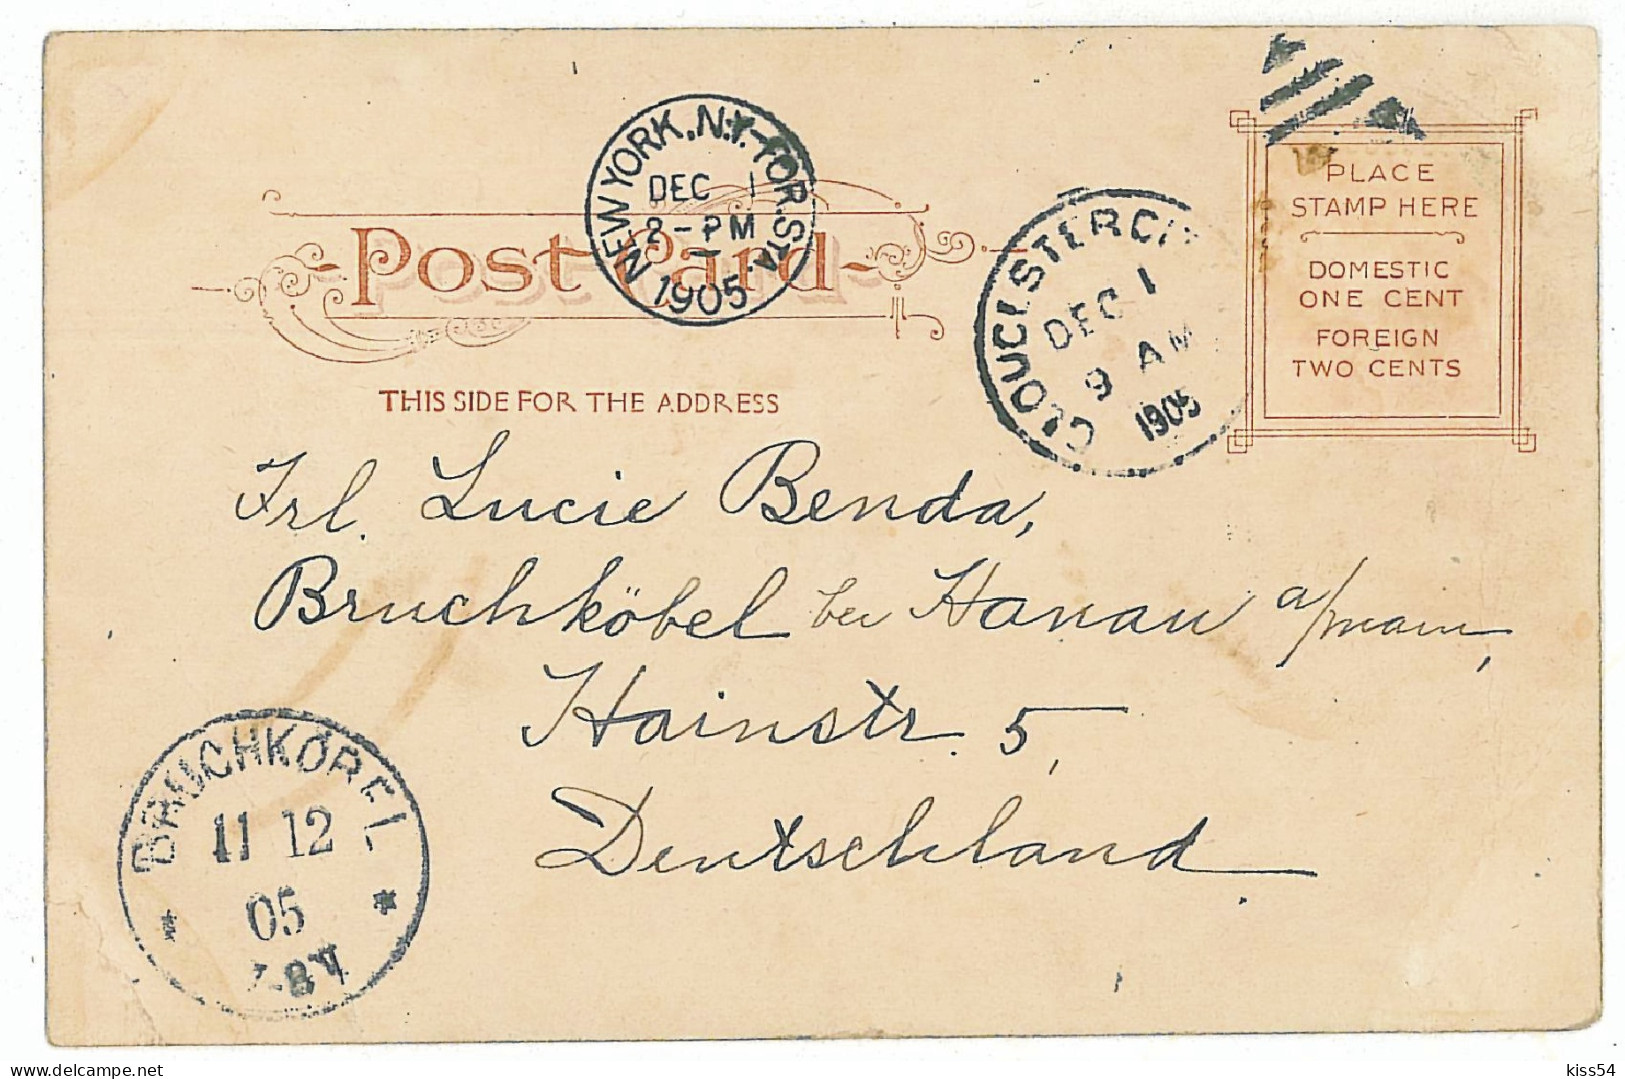 NEW YORK, N.Y.-FOR. STA.
DEC 1
2-PM
1905
Post Card
THIS SIDE FOR THE ADDRESS
GLOUCESTER CITY
DEC 1
9 AM
1905
PLACE
STAMP HERE
DOMESTIC
ONE CENT
FOREIGN
TWO CENTS
Frl. Lucie Benda,
Bruchköbel bei Hanau a/main,
Hainstr. 5,
Deutschland.
BRUCHKÖBEL
11 12
05
7-8V
kiss54